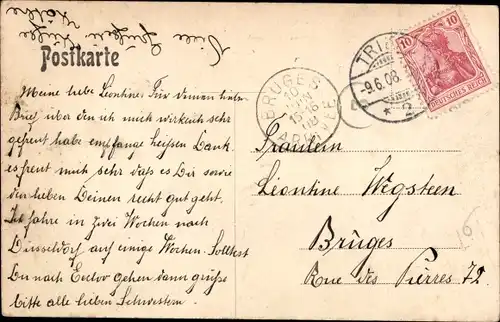 Viele Grüße
Postkarte
Meine liebe Leontine! Für deinen lieben
Brief über den ich mich wirklich sehr
gefreut habe empfange heißen Dank.
es freut mich sehr daß es Dir sowie
den lieben Deinen recht gut geht.
Ich fahre in zwei Wochen nach
Düsseldorf auf einige Wochen. Solltest
Du nach Eecloo gehen dann grüße
bitte alle lieben Schwestern.
BRUGES
10
JUIN
15-16
1908
ARRIVÉE
TRIER
-9.6.08
* 2
10 10
DEUTSCHES REICH
Fräulein
Léontine Wegsteen
Bruges
Rue des Pierres 72.